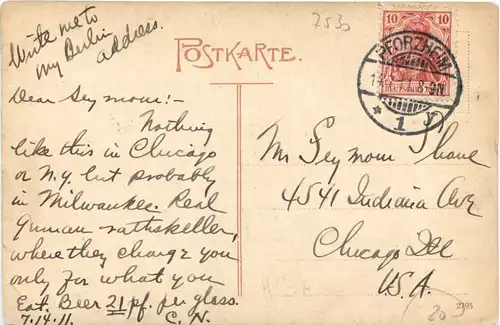 Write me to
my Berlin
address.
7530
POSTKARTE.
10 10
DEUTSCHES REICH
PFORZHEIM
* 1
Dear Seymour:-
Nothing
like this in Chicago
or N.Y. but probably
in Milwaukee. Real
German rathskeller,
where they charge you
only for what you
Eat. Beer 21 pf. per glass.
7.14.11. C.N.
Mr Seymour Shave
4541 Indiana Ave
Chicago Ill
U.S.A.
2793